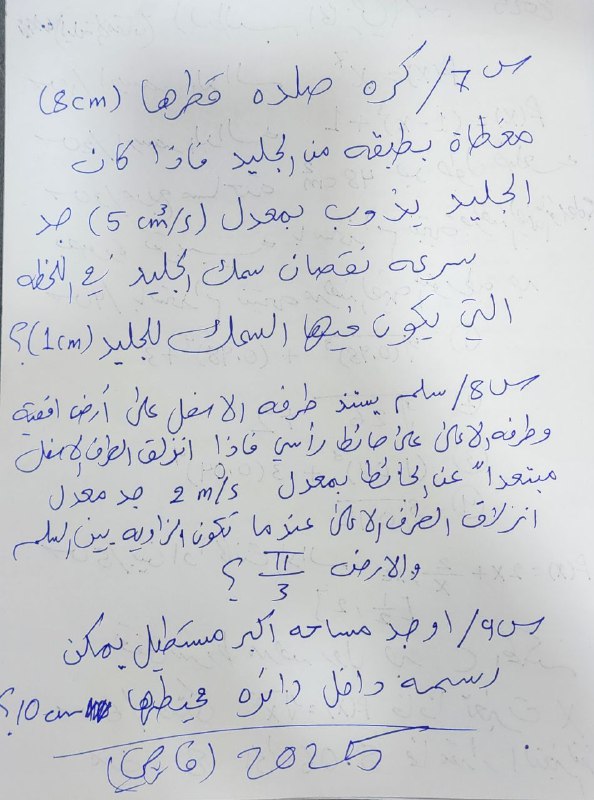 س7/ كره صلده قطرها (8cm)
مغطاة بطبقه من الجليد فاذا كان
الجليد يذوب بمعدل (5 cm³/s) جد
سرعه نقصان سمك الجليد في اللحظه
التي يكون فيها السمك للجليد (1cm)؟
س8/ سلم يستند طرفه الاسفل على أرض افقية
وطرفه الاعلى على حائط رأسي فاذا انزلق الطرف الاسفل
مبتعداً عن الحائط بمعدل 2 m/s جد معدل
انزلاق الطرف الاعلى عندما تكون الزاويه بين السلم
والارض π/3 ؟
س9/ اوجد مساحه اكبر مستطيل يمكن
رسمه داخل دائره محيطها 10 cm ؟
2025 (خارجي)